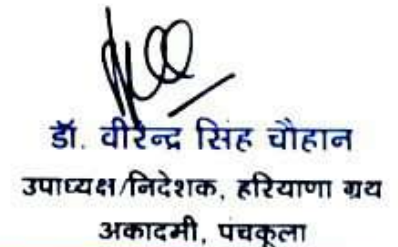 डॉ. वीरेन्द्र सिंह चौहान
उपाध्यक्ष/निदेशक, हरियाणा ग्रथ
अकादमी, पंचकूला